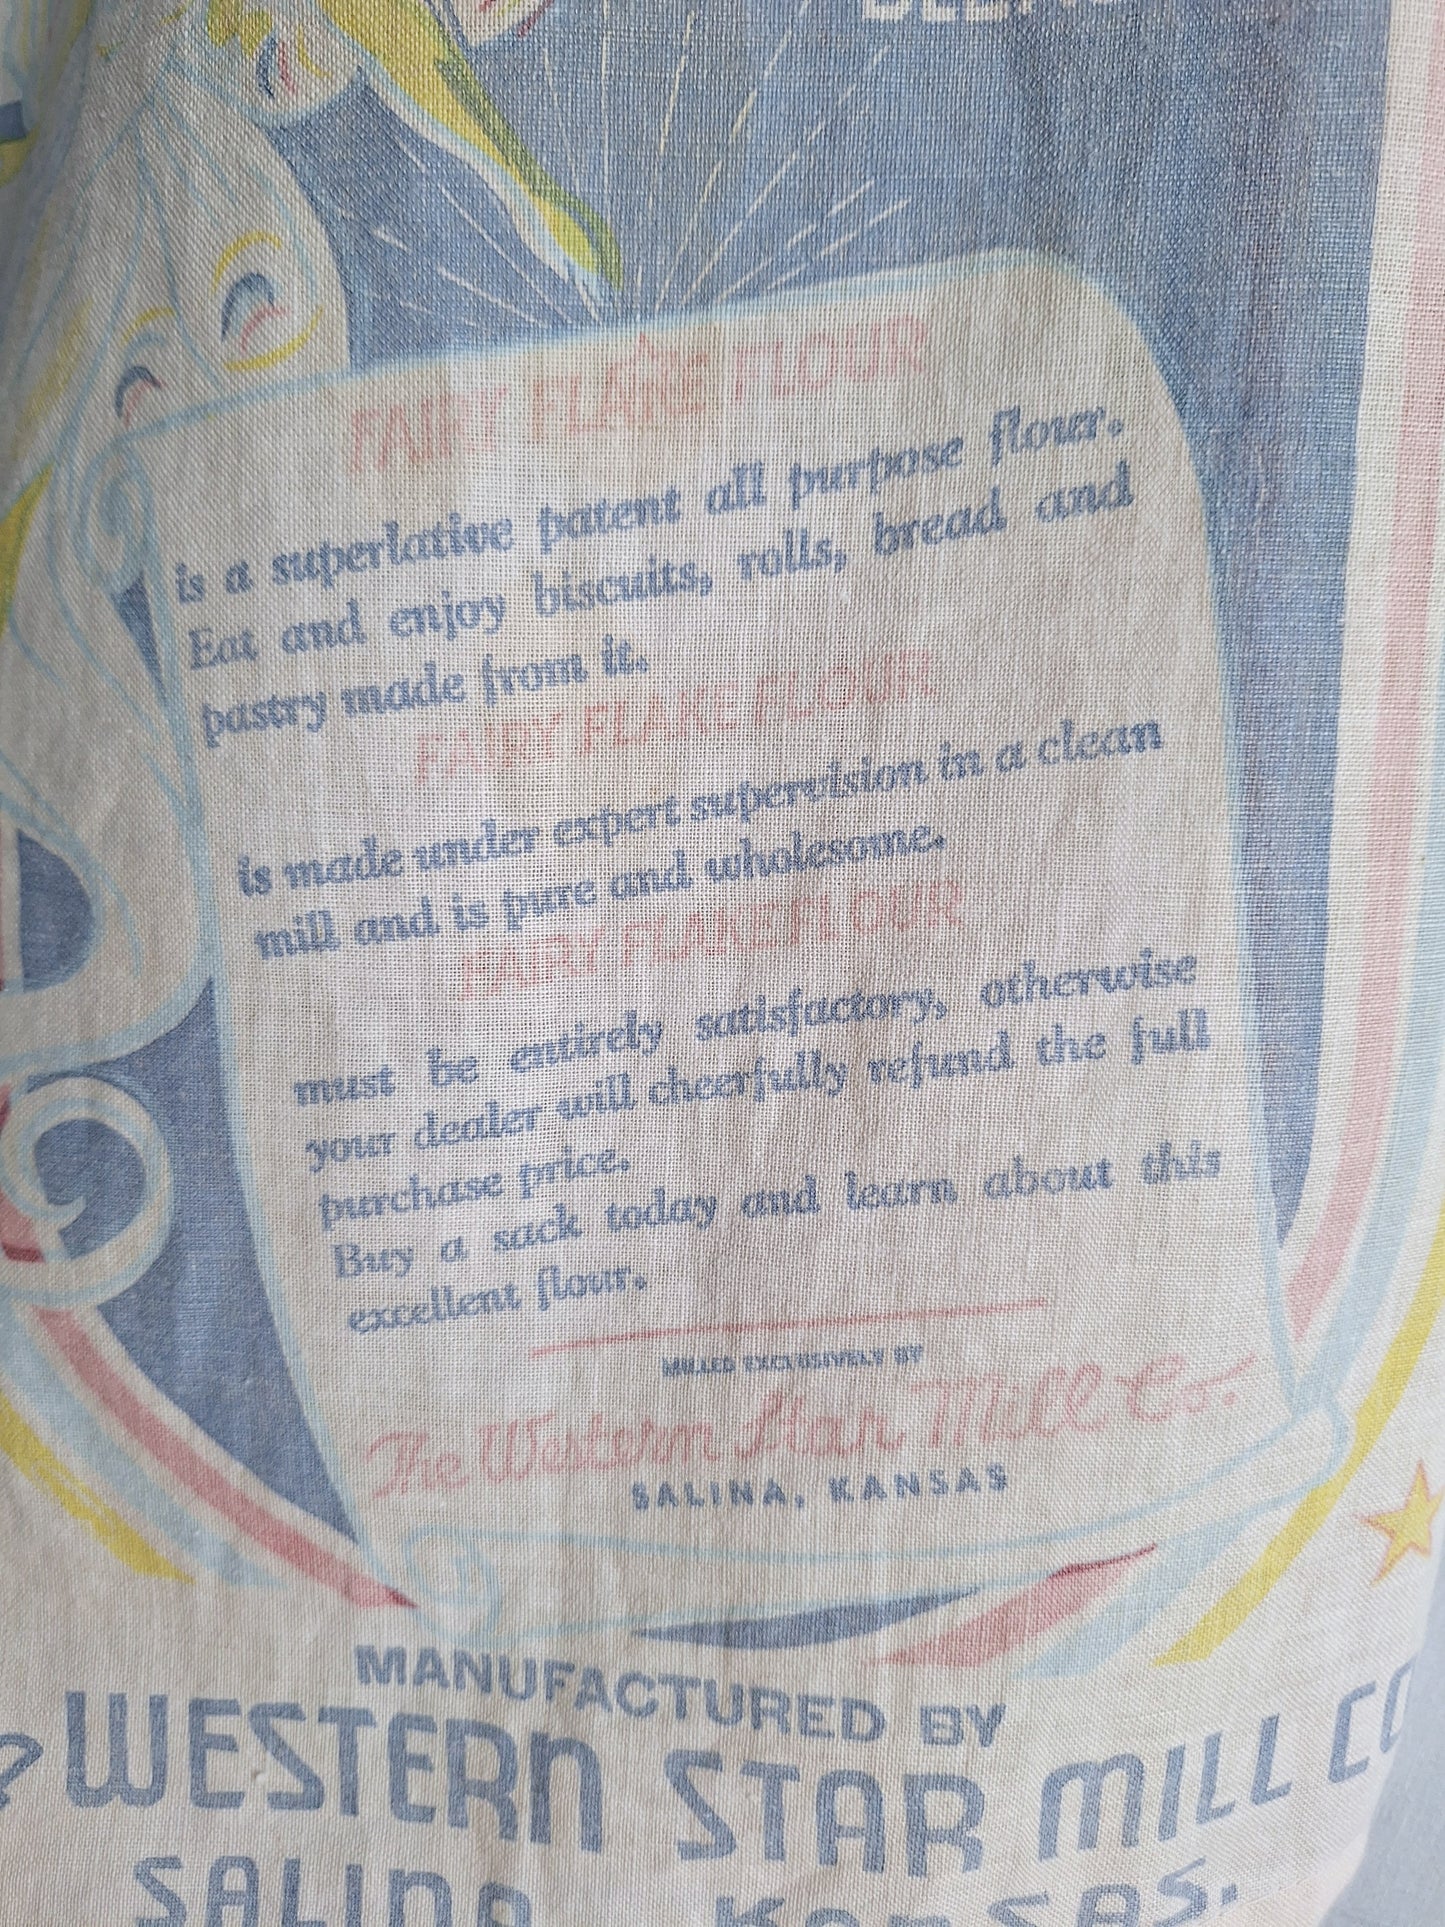 FAIRY FLAKE FLOUR
is a superlative patent all purpose flour.
Eat and enjoy biscuits, rolls, bread and
pastry made from it.
FAIRY FLAKE FLOUR
is made under expert supervision in a clean
mill and is pure and wholesome.
FAIRY FLAKE FLOUR
must be entirely satisfactory, otherwise
your dealer will cheerfully refund the full
purchase price.
Buy a sack today and learn about this
excellent flour.
MILLED EXCLUSIVELY BY
The Western Star Mill Co.
SALINA, KANSAS
MANUFACTURED BY
WESTERN STAR MILL CO
SALINA KANSAS.